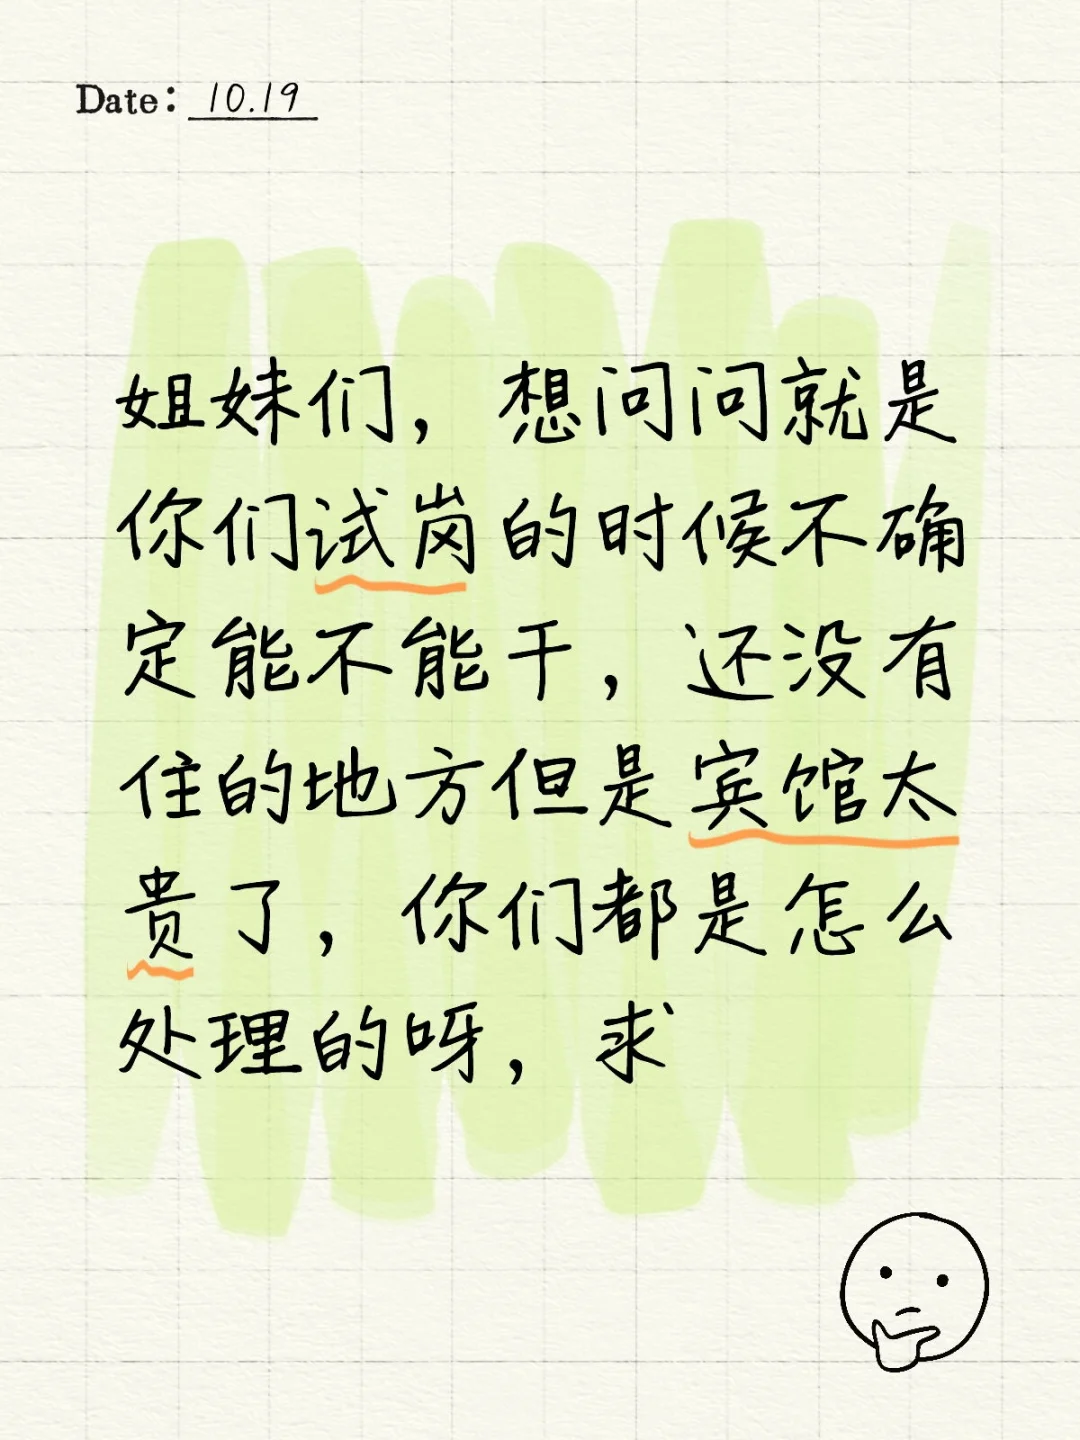 Date: 10.19
姐妹们，想问问就是
你们试岗的时候不确
定能不能干，还没有
住的地方但是宾馆太
贵了，你们都是怎么
处理的呀，求